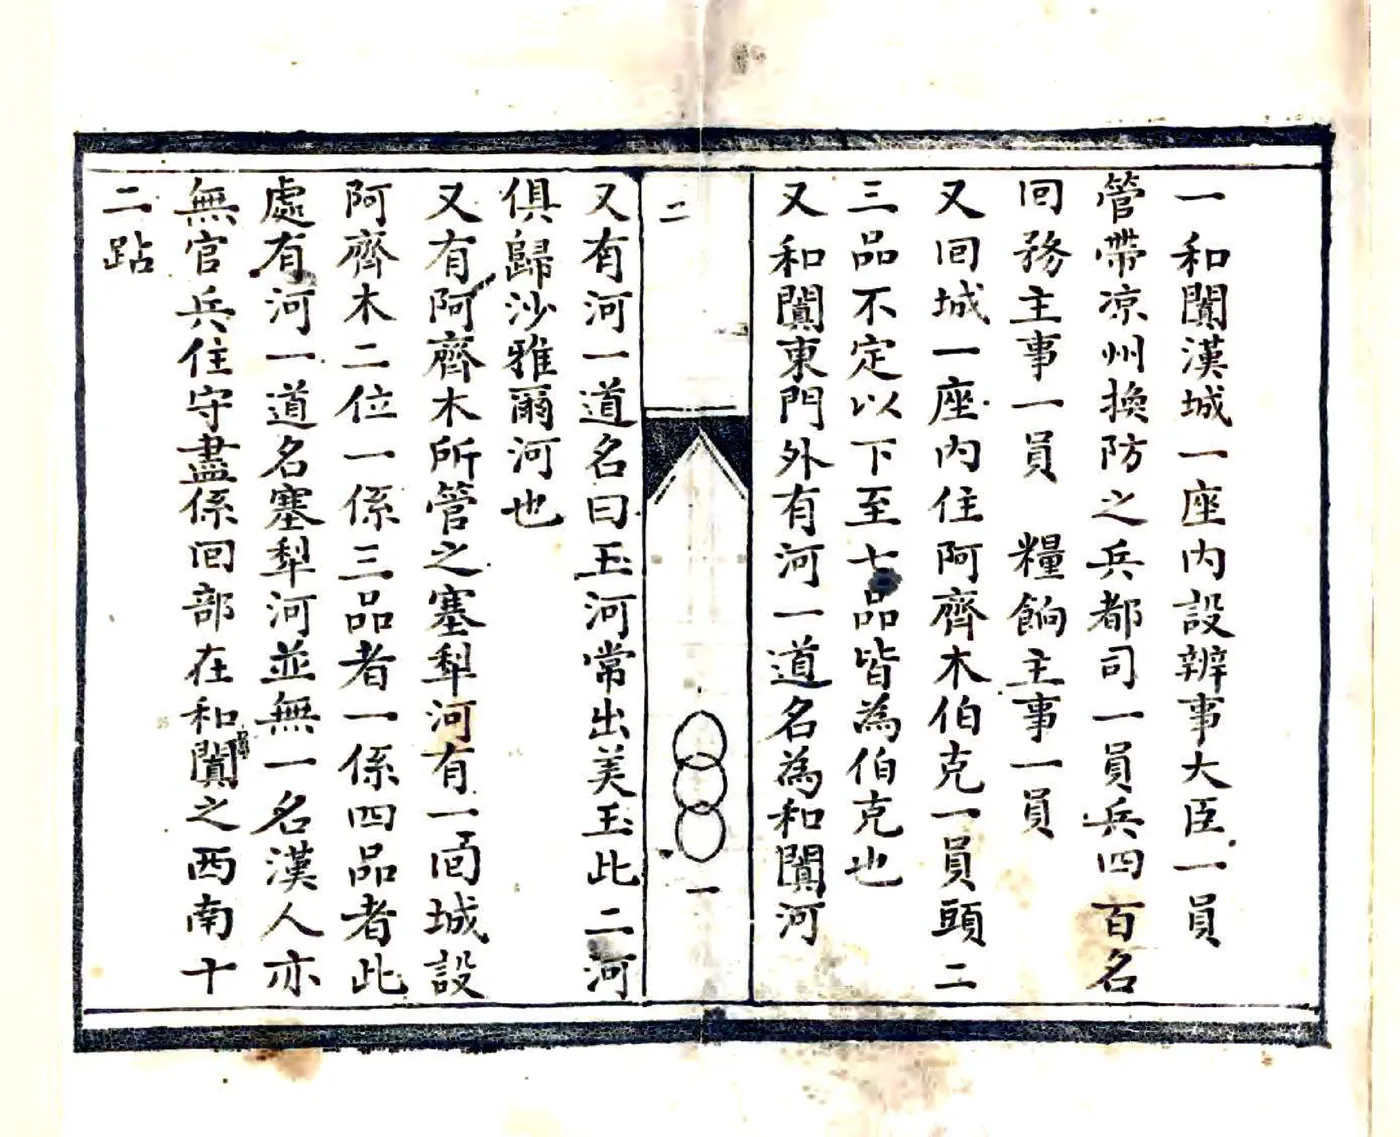 一和闐漢城一座内設辦事大臣一員
管帶凉州換防之兵都司一員兵四百名
囘務主事一員　糧餉主事一員
又囘城一座内住阿齊木伯克一員頭二
三品不定以下至七品皆為伯克也
又和闐東門外有河一道名為和闐河
二
一
又有河一道名曰玉河常出美玉此二河
俱歸沙雅爾河也
又有阿齊木所管之塞犁河有一囘城設
阿齊木二位一係三品者一係四品者此
處有河一道名塞犁河並無一名漢人亦
無官兵住守盡係囘部在和闐之西南十
二跕